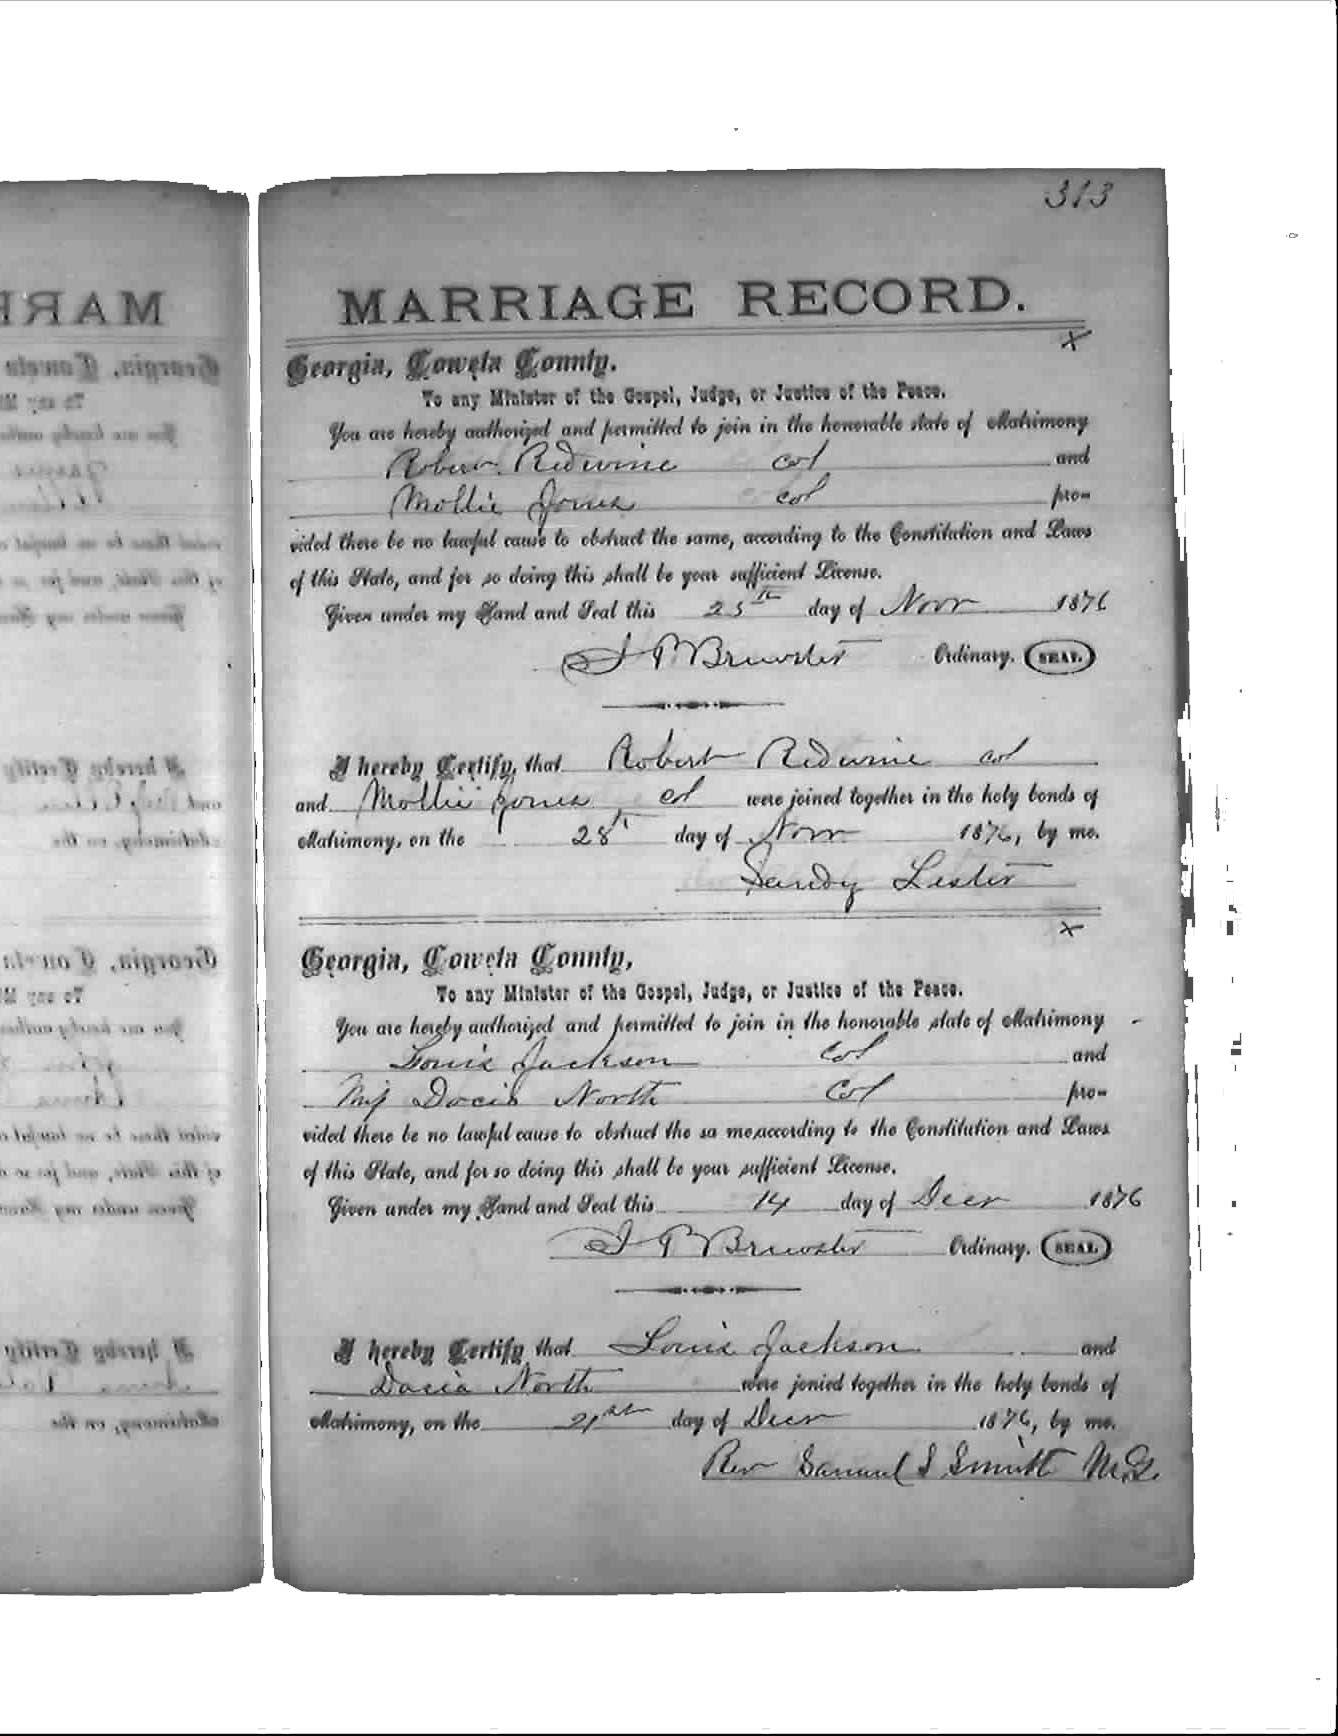 313
MARRIAGE RECORD.
x
Georgia, Coweta County.
To any Minister of the Gospel, Judge, or Justice of the Peace.
You are hereby authorized and permitted to join in the honorable state of Matrimony
Robert Redwine col and
Mollie Jones col pro-
vided there be no lawful cause to obstruct the same, according to the Constitution and Laws
of this State, and for so doing this shall be your sufficient License.
Given under my Hand and Seal this 25th day of Novr 1876
J P Brewster Ordinary. SEAL
I hereby Certify, that Robert Redwine col
and Mollie Jones col were joined together in the holy bonds of
Matrimony, on the 28t day of Novr 1876, by me.
Sandy Lester
x
Georgia, Coweta County,
To any Minister of the Gospel, Judge, or Justice of the Peace.
You are hereby authorized and permitted to join in the honorable state of Matrimony
Louis Jackson Col and
Miss Docia North Col pro-
vided there be no lawful cause to obstruct the sa me,according to the Constitution and Laws
of this State, and for so doing this shall be your sufficient License.
Given under my Hand and Seal this 14 day of Decr 1876
J P Brewster Ordinary. SEAL
I hereby Certify that Louis Jackson and
Docia North were jonied together in the holy bonds of
Matrimony, on the 21st day of Decr 1876, by me.
Rev Samuel S Smith M.G.